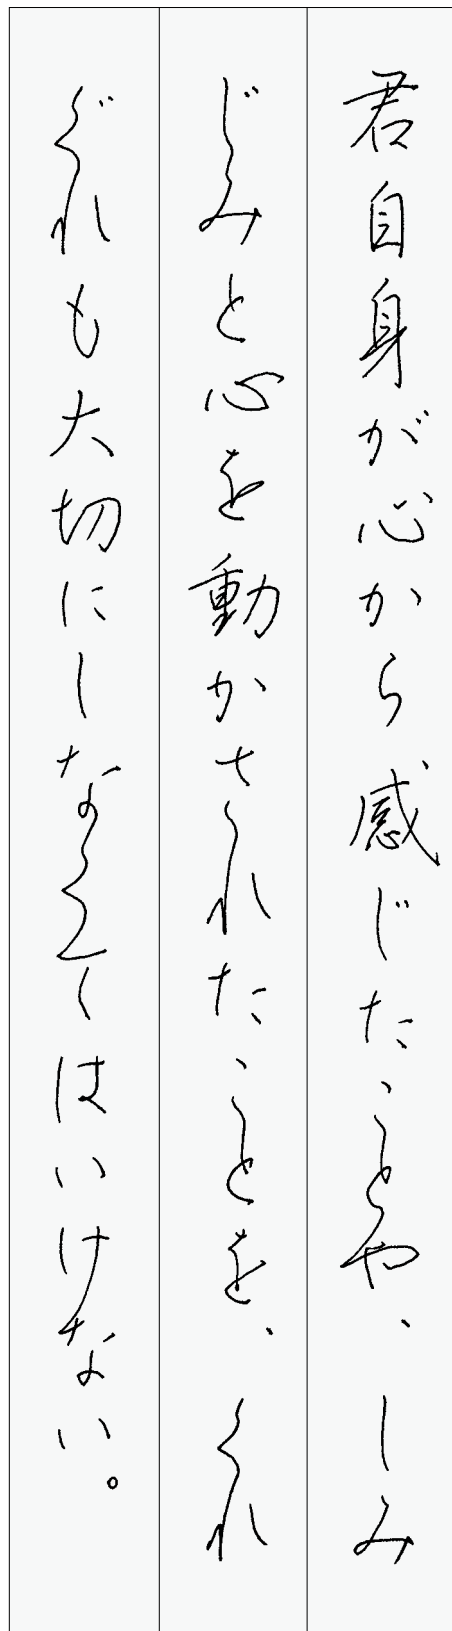 君自身が心から感じたことや、しみ
じみと心を動かされたことを、くれ
ぐれも大切にしなくてはいけない。